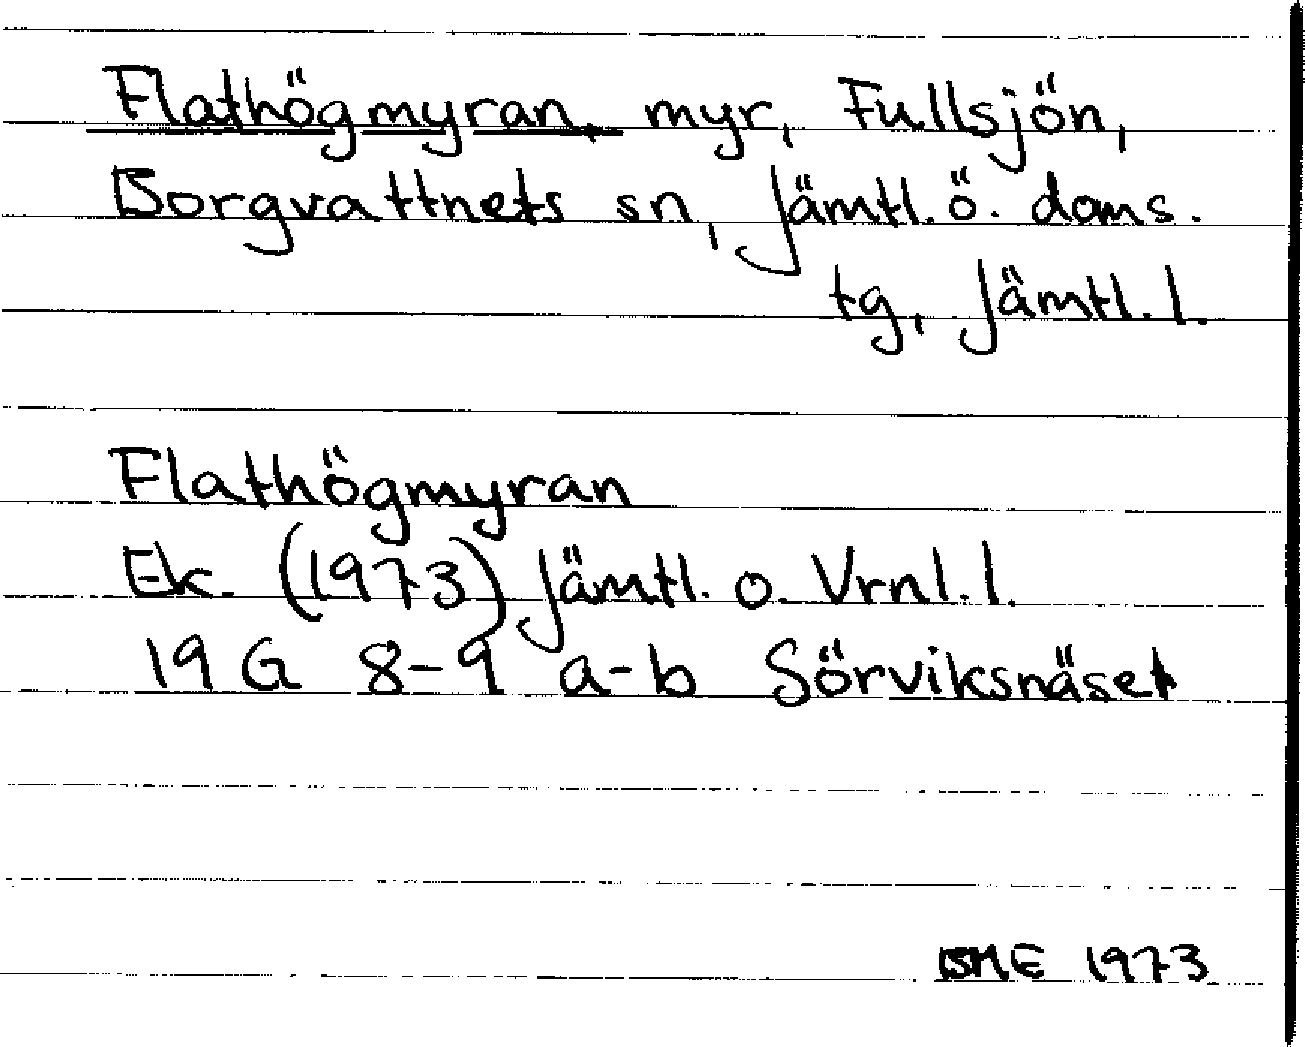 Flathögmyran, myr, Fullsjön,
Borgvattnets sn, Jämtl. ö. doms.
tg, Jämtl. l.
Flathögmyran
Ek. (1973) Jämtl. o. Vrnl. l.
19 G 8-9 a-b Sörviksnäset
BME 1973